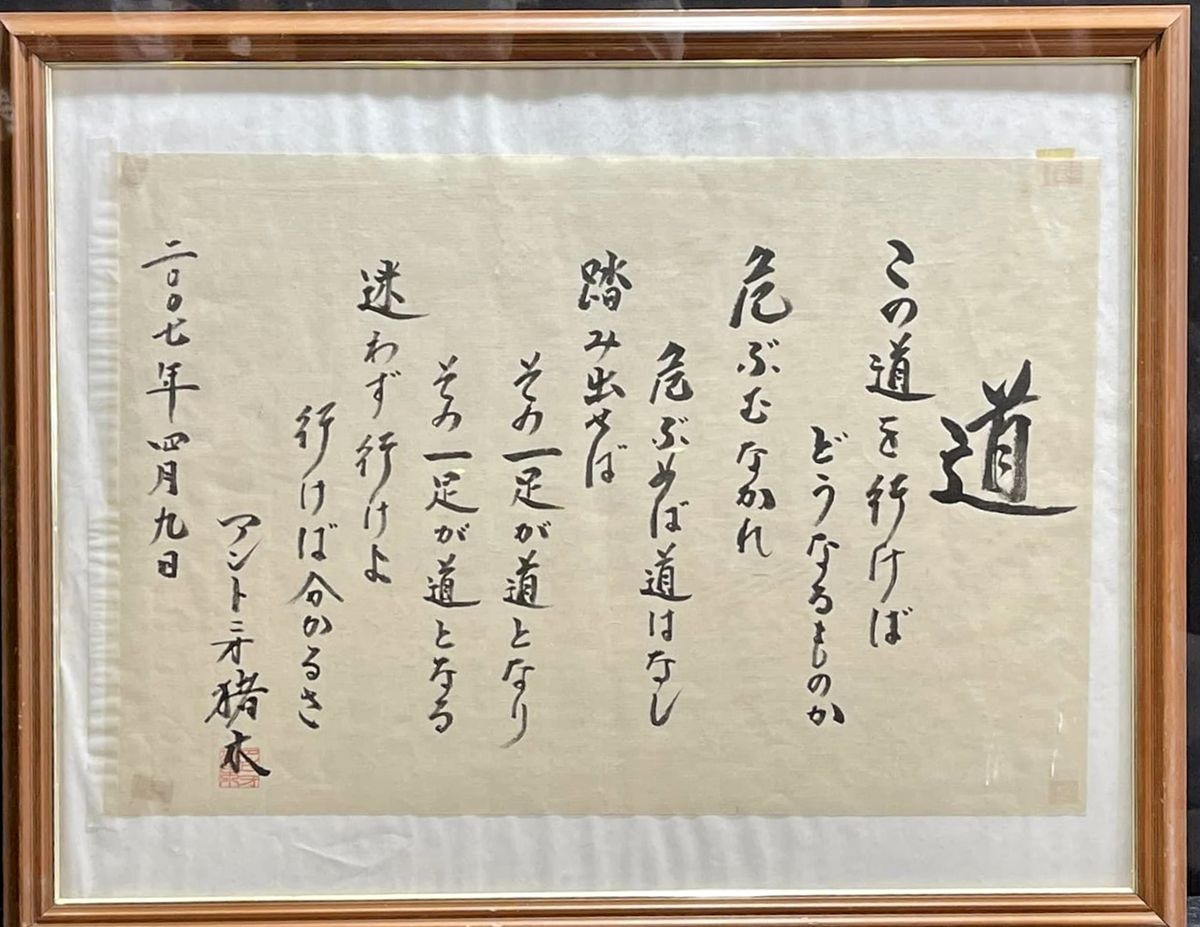 道
この道を行けば
どうなるものか
危ぶむなかれ
危ぶめば道はなし
踏み出せば
その一足が道となり
その一足が道となる
迷わず行けよ
行けば分かるさ
アントニオ猪木
二〇〇七年四月九日